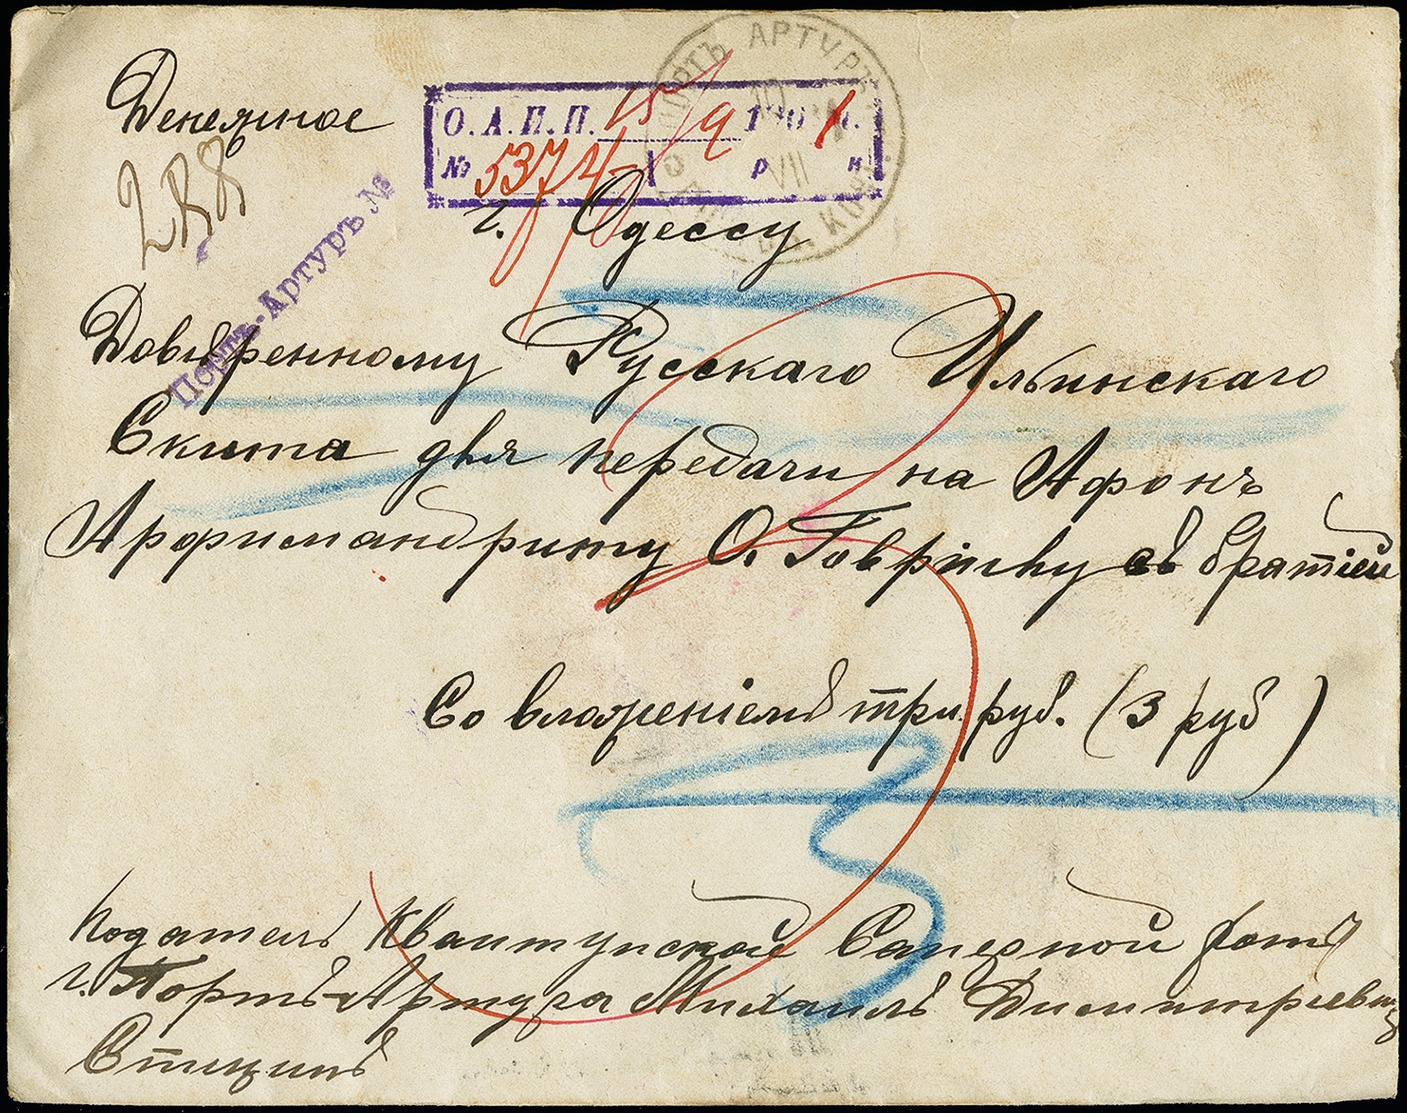 Денежное
288
Портъ-Артуръ №
О.А.П.П. 15/9 1901 г.
№ 5374 1 р н
ПОРТЪ АРТУРЪ
10
VII
г. Одессу
Довѣренному Русскаго Ильинскаго
Скита для передачи на Афонъ
Архимандриту О. Говрiилу съ братiей
Со вложенiемъ три руб. (3 руб)
3
Податель Квантунской Саперной роты
г. Портъ-Артура Михаилъ Димитрiевич